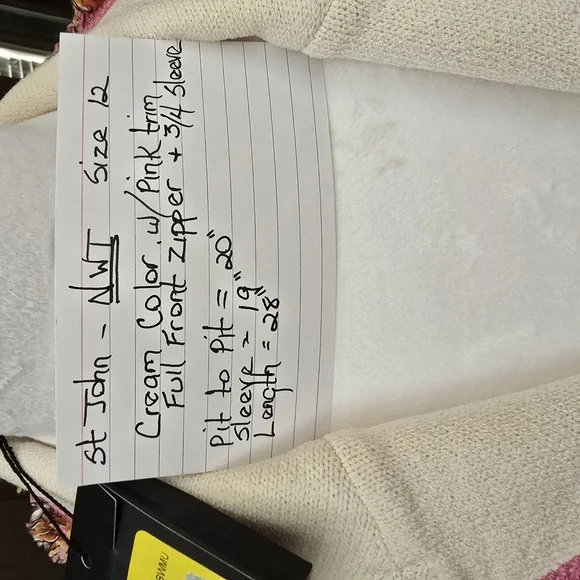 St John - NWT Size 12
Cream Color w/Pink trim
Full Front Zipper + 3/4 Sleeve
Pit to Pit = 20"
Sleeve = 19"
Length = 28"